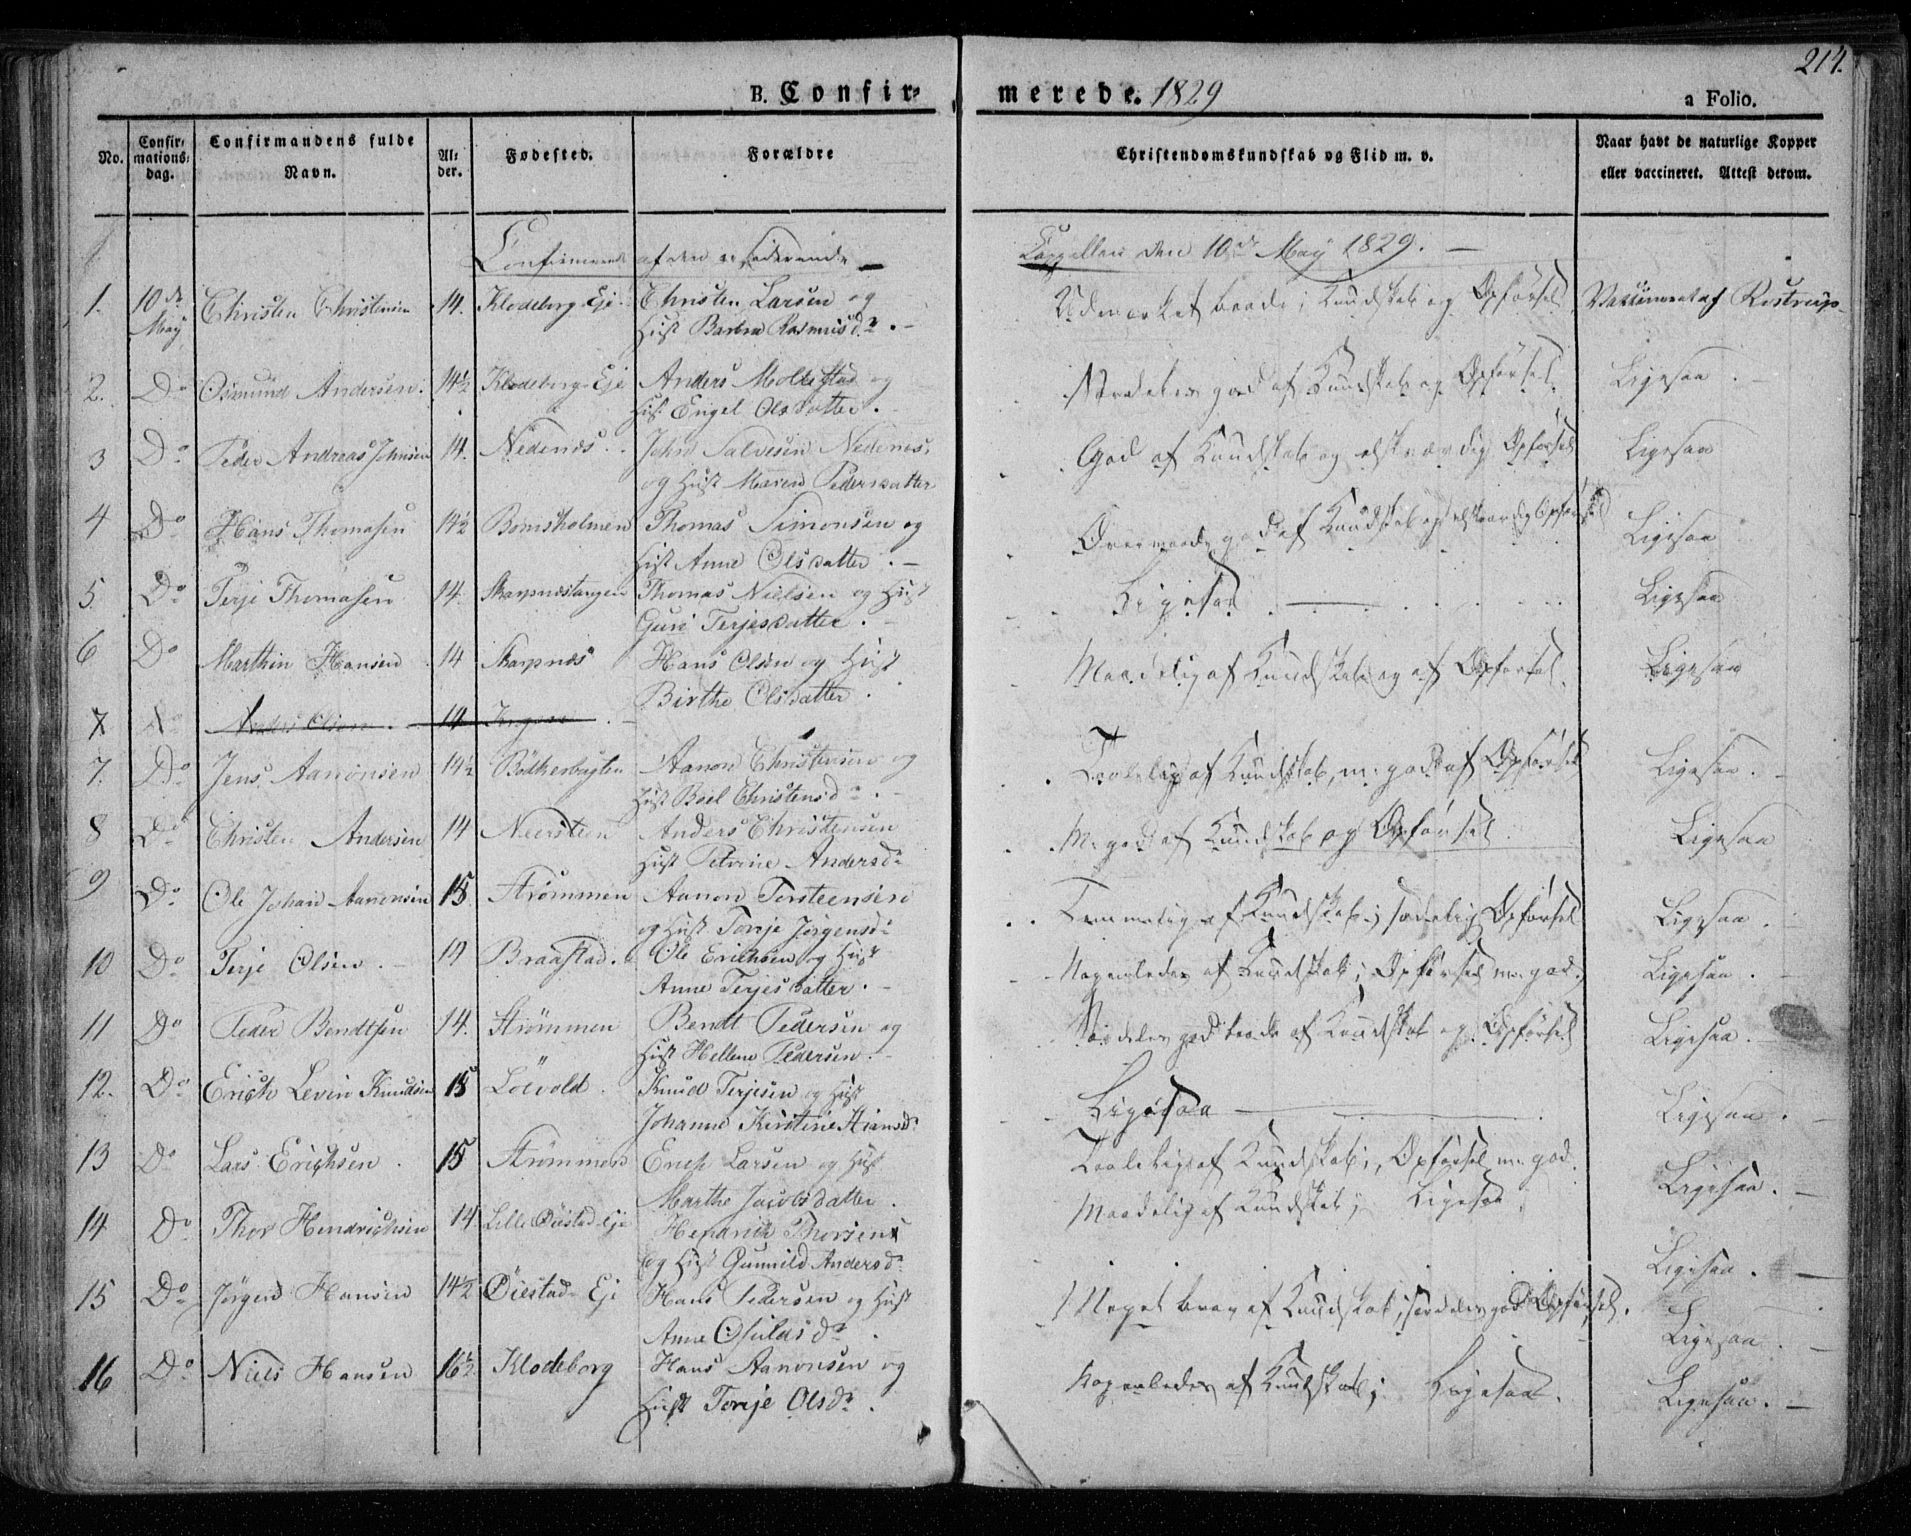 214.
B. Confir= merede. 1829
a Folio.
No. Confir= mations= dag. Confirmandens fulde Navn. Al= der. Fødested. Forældre Christendomskundskab og Flid m. v. Naar havt de naturlige Kopper eller vaccineret. Attest derom.
Confirmerede af den Cappellan den 10de May 1829. —
1. 10de May Christen Christensen 14. Klodeborg Eje Christen Larsen og Udmærket baade i Kundskab og Opførsel Vaccineret af Rostrup.
Hust Barbra Rasmusdr. —
2. Do Osmund Andersen. 14½ Klodeborg-Eje Anders Mollestad og Særdeles god af Kundskab og Opførsel. Ligesaa . —
Hust Engel Olsdatter.
3 Do Peder Andreas Johnsen 14. Nedenes. John Salvesen Nedenes. God af Kundskab og elskværdig Opførsel Ligesaa
og Hust Maren Pedersdatter
4 Do Hans Thomasen 14½ Bomsholmen Thomas Simonsen og Overmaade god af Kundskab og elskværdig Opførsel Ligesaa
Hust Anne Olsdatter. —
5. Do Terje Thomasen 14. Skarpnestangen Thomas Nielsen og Hust Ligesaa Ligesaa
Guri Terjesdatter. —
6 Do Marthin Hansen 14 Skarpnæs Hans Olsen og Hust Maadelig af Kundskab og af Opførsel. Ligesaa
Birthe Olsdatter.
7 Do Anders Olsen. 14
7. Do Jens Aanonsen 14½ Bödkerbugten Aanon Christensen og Taalelig af Kundskab, m. god af Opførsel Ligesaa. —
Hust Boel Christensdr.
8 Do Christen Andersen 14 Neersteen Anders Christensen M. god af Kundskab og Opførsel Ligesaa
Hust Petrine Andersdr
9 Do Ole Johan Aanonsen 15. Strømmen Aanon Torsteensen Temmelig af Kundskab, sædelig Opførsel Ligesaa.
og Hust Torje Jörgensdr
10 Do Terje Olsen. 14 Braastad. Ole Erichsen og Hust Nogenledes af Kundskab, i Opførsel m. god. Ligesaa. —
Anne Terjesdatter. —
11 Do Peder Bendtsen 14. Strömmen Bendt Pedersen og Særdeles god baade af Kundskab og Opførsel Ligesaa. —
Hust Hellene Pedersen. —
12. Do Erich Levin Knudsen 15 Löevold. Knud Terjesen og Hust Ligesaa Ligesaa.
Johanne Kirstine
13 Do Lars Erichsen. 15 Strømmen Erich Larsen og Hust Taalelig af Kundskab, i Opførsel m. god. Ligesaa. —
Marthe Jacobsdatter.
14 Do Thor Hendrichsen 14 Lille Øiestad Eje Hendrich Thorsen Maadelig af Kundskab i Ligesaa. Ligesaa. —
og Hust Gunnild Andersdr
15 Do Jørgen Hansen 14½ Øiestad-Eje Hans Pedersen og Hust Meget brav af Kundskab, særdeles god Opførsel. Ligesaa. —
Anne Osuldsdr.
16 Do Niels Hansen 16½ Klodeborg Hans Aanonsen og Nogenledes af Kundskab i Ligesaa. Ligesaa. —
Hust Torje Olsdr.